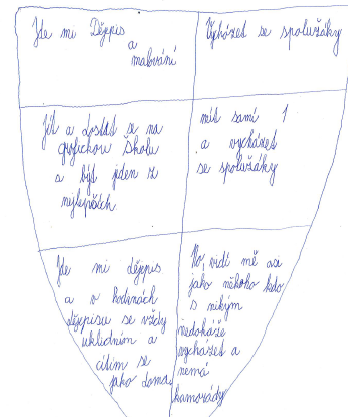 Jde mi Dějepis
a
malování
Vycházet se spolužáky
Jít a dostat se na
grafickou školu
a být jeden z
nejlepších
mít samé 1
a vycházet
se spolužáky
Jde mi dějepis
a v hodinách
dějepisu se vždy
uklidním a
cítím se
jako doma
vidí mě asi
jako někoho kdo
s nikým
nedokáže
vycházet a
nemá
kamarády